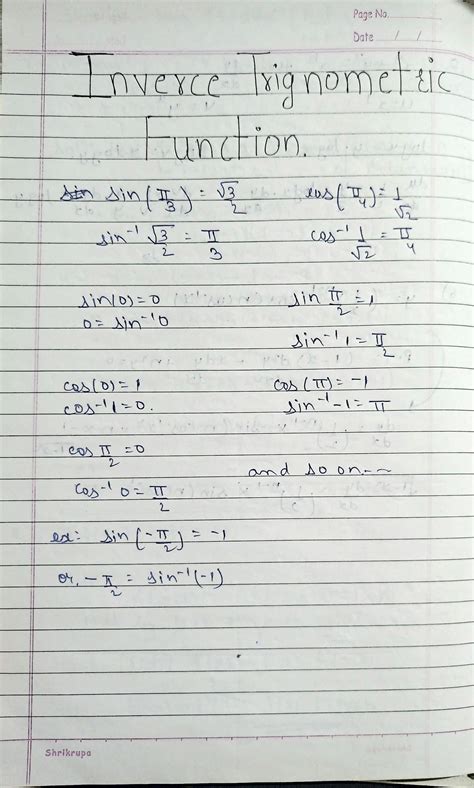 Page No.
Date / /
Inverce Trignometric
Function.
sin(π/3) = √3/2    cos(π/4) = 1/√2
sin⁻¹ √3/2 = π/3    cos⁻¹ 1/√2 = π/4
sin(0) = 0    sin π/2 = 1
0 = sin⁻¹0    sin⁻¹1 = π/2
cos(0) = 1    cos(π) = -1
cos⁻¹1 = 0.    sin⁻¹-1 = π
cos π/2 = 0
and so on--
cos⁻¹ 0 = π/2
ex: sin(-π/2) = -1
or, -π/2 = sin⁻¹(-1)
Shrikrupa